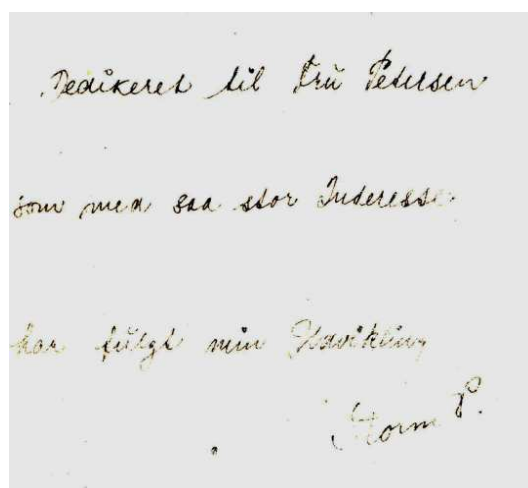 Dedikeret til Frü Petersen
som med saa stor Interesse
har fülgt min Udvikling
Storm P.